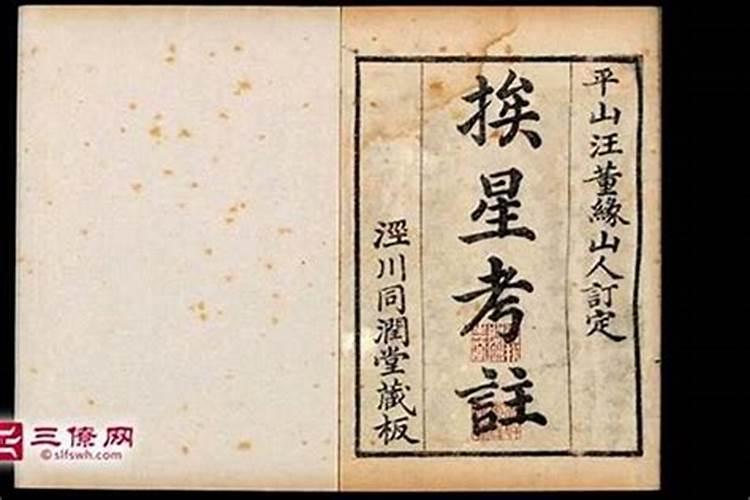 平山汪董緣山人訂定
挨星考註
涇川同潤堂藏板
三僚网
©slfswh.com